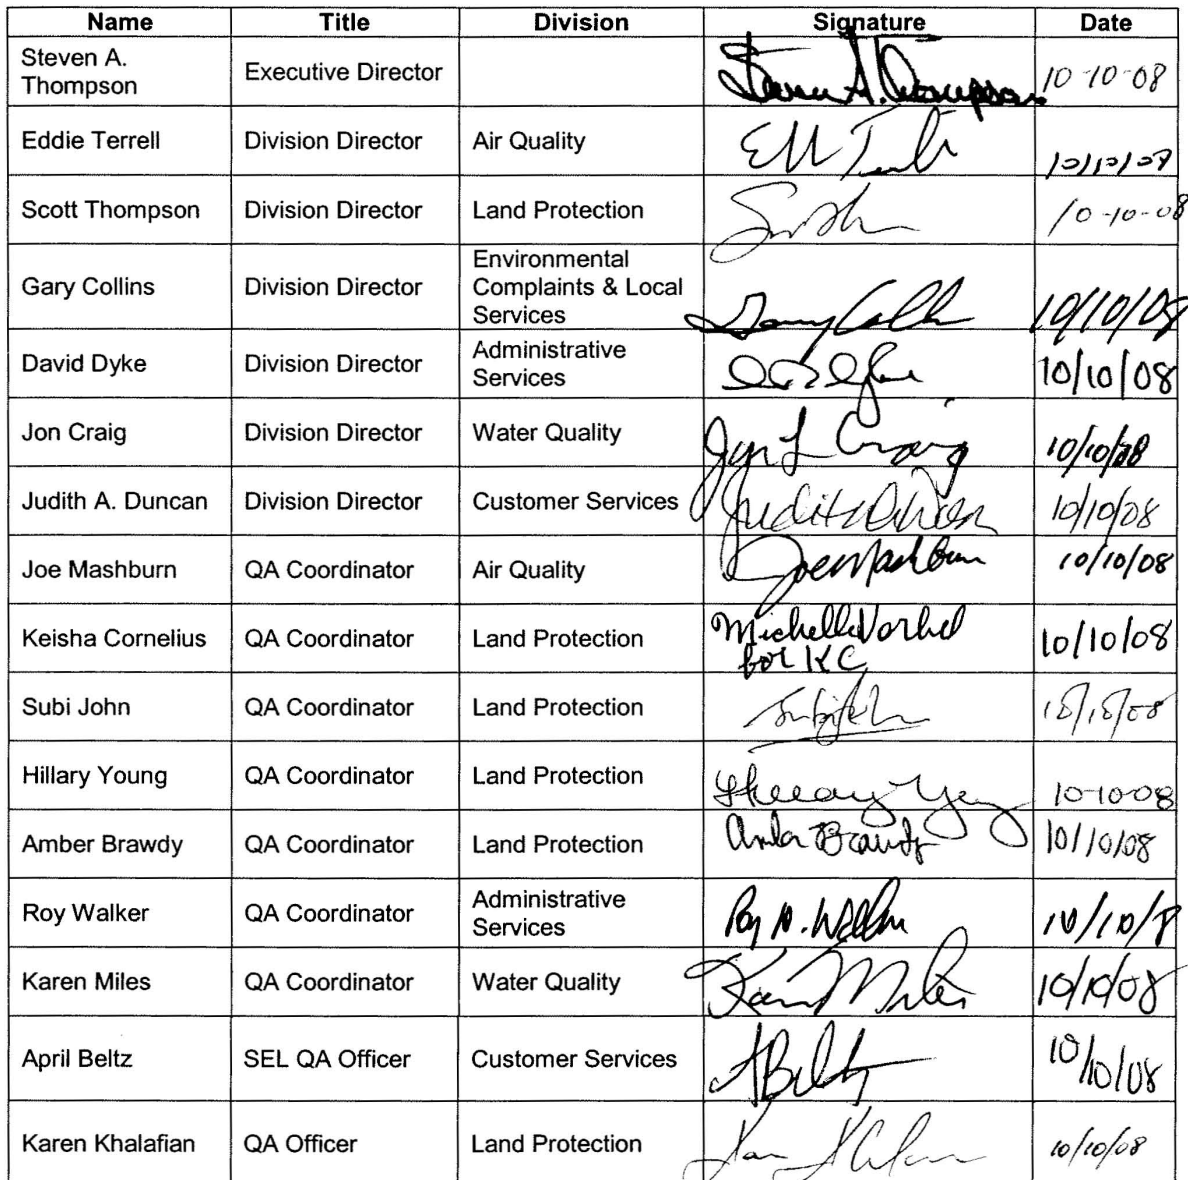 Name Title Division Signature Date
Steven A.
Thompson Executive Director Steven A. Thompson 10-10-08
Eddie Terrell Division Director Air Quality 10/10/08
Scott Thompson Division Director Land Protection 10-10-08
Gary Collins Division Director Environmental
Complaints & Local
Services Gary Collins 10/10/08
David Dyke Division Director Administrative
Services 10/10/08
Jon Craig Division Director Water Quality Jon L Craig 10/10/08
Judith A. Duncan Division Director Customer Services Judith A Duncan 10/10/08
Joe Mashburn QA Coordinator Air Quality Joe Mashburn 10/10/08
Keisha Cornelius QA Coordinator Land Protection Michelle Vorhel
for KC 10/10/08
Subi John QA Coordinator Land Protection Subi John
Hillary Young QA Coordinator Land Protection Hillary Young 10-10-08
Amber Brawdy QA Coordinator Land Protection Amber Brawdy 10/10/08
Roy Walker QA Coordinator Administrative
Services Roy D. Walker 10/10/8
Karen Miles QA Coordinator Water Quality Karen Miles 10/10/08
April Beltz SEL QA Officer Customer Services ABeltz 10/10/08
Karen Khalafian QA Officer Land Protection 10/10/08